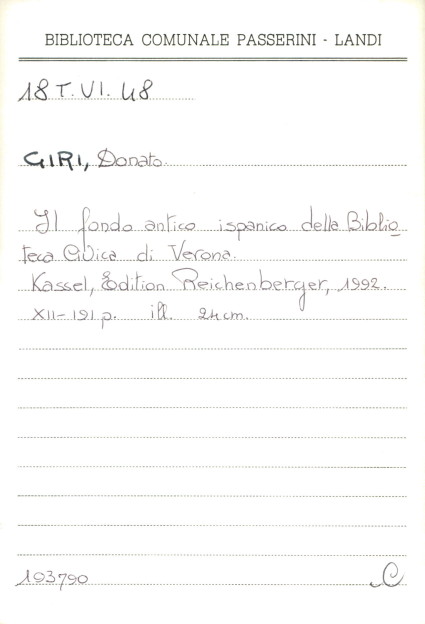 BIBLIOTECA COMUNALE PASSERINI - LANDI
18 T. VI. 48
GIRI, Donato.
Il fondo antico ispanico della Biblio
teca Civica di Verona.
Kassel, Edition Reichenberger, 1992.
XII-191 p. ill. 24 cm.
193790 C